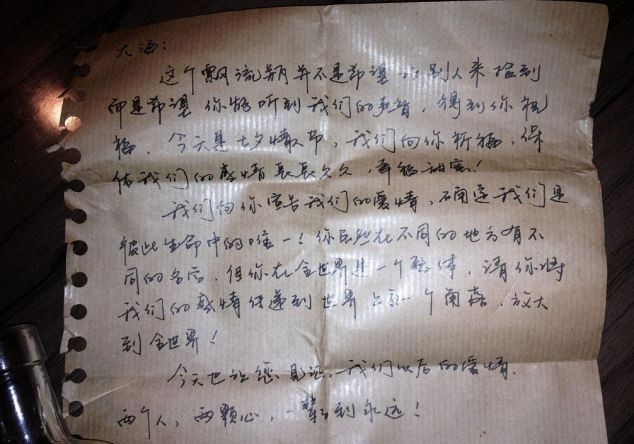 大海：
这个飘流瓶并不是希望让别人来捡到
而是希望你能听到我们的声音，得到你祝
福，今天是七夕情人节，我们向你祈福，保
佑我们的感情长长久久，幸福甜蜜！
我们向你宣告我们的爱情，确定我们是
彼此生命中的唯一！你虽然在不同的地方有不
同的名字，但你在全世界是一个整体，请你将
我们的感情传递到世界上每一个角落，放大
到全世界！
今天也让您见证，我们以后的爱情，
两个人，两颗心，一辈子到永远！